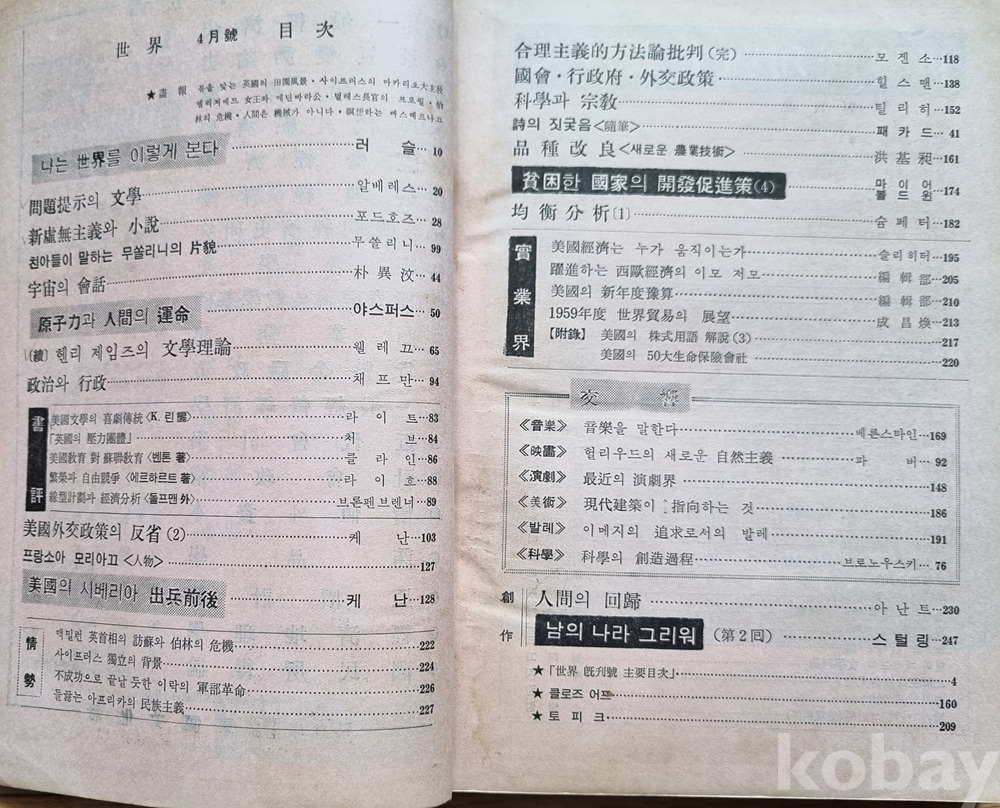 世界 4月號 目次
★畫報 봄을 맞는 英國의 田園風景·사이프러스의 마카리오大主敎
엘리자베드 女王과 에딘바라公·덜레스長官의 프로필·伯
林의 危機·人間은 機械가 아니다·瞑想하는 파스테르나크
나는 世界를 이렇게 본다 러슬 10
問題提示의 文學 알베레스 20
新虛無主義와 小說 포드호즈 28
친아들이 말하는 무쏠리니의 片貌 무쏠리니 99
宇宙의 會話 朴異汶 44
原子力과 人間의 運命 야스퍼스 50
〔續〕헨리 제임즈의 文學理論 웰레끄 65
政治와 行政 채프만 94
書評
美國文學의 喜劇傳統〈K. 린 著〉 라이트 83
「英國의 壓力團體」 처브 84
美國敎育 對 蘇聯敎育〈벤튼 著〉 클라인 86
繁榮과 自由競爭〈에르하르트 著〉 라이호 88
線型計劃과 經濟分析〈돌프맨 外〉 브론펜브렌너 89
美國外交政策의 反省(2) 케난 103
프랑소아 모리아끄〈人物〉 127
美國의 시베리아 出兵前後 케난 128
情勢
맥밀린 英首相의 訪蘇와 伯林의 危機 222
사이프러스 獨立의 背景 224
不成功으로 끝날 듯한 이락의 軍部革命 226
들끓는 아프리카의 民族主義 227
合理主義的方法論批判(完) 모겐소 118
國會·行政府·外交政策 힐스맨 138
科學과 宗敎 틸리히 152
詩의 짓궂음〈隨筆〉 패카드 41
品種改良〈새로운 農業技術〉 洪基昶 161
貧困한 國家의 開發促進策(4) 마이어 볼드윈 174
均衡分析〔1〕 슘페터 182
實業界
美國經濟는 누가 움직이는가 슬리히터 195
躍進하는 西歐經濟의 이모 저모 編輯部 205
美國의 新年度豫算 編輯部 210
1959年度 世界貿易의 展望 成昌煥 213
【附錄】 美國의 株式用語 解說(3) 217
美國의 50大生命保險會社 220
交響
《音樂》 音樂을 말한다 베른스타인 169
《映畫》 헐리우드의 새로운 自然主義 파버 92
《演劇》 最近의 演劇界 148
《美術》 現代建築이 指向하는 것 186
《발레》 이메지의 追求로서의 발레 191
《科學》 科學의 創造過程 브로노우스키 76
創作
人間의 回歸 아난트 230
남의 나라 그리워 (第2回) 스털링 247
★「世界 旣刊號 主要目次」 4
★클로즈 어프 160
★토피크 209
kobay